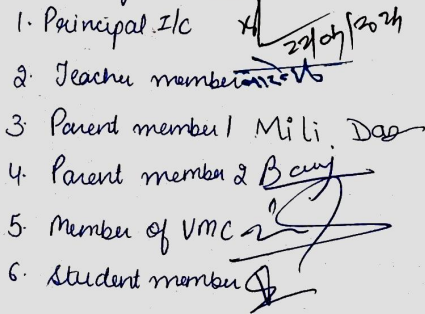 1. Principal I/c
2. Teacher member
3. Parent member 1 Mili Das
4. Parent member 2
5. Member of VMC
6. Student member